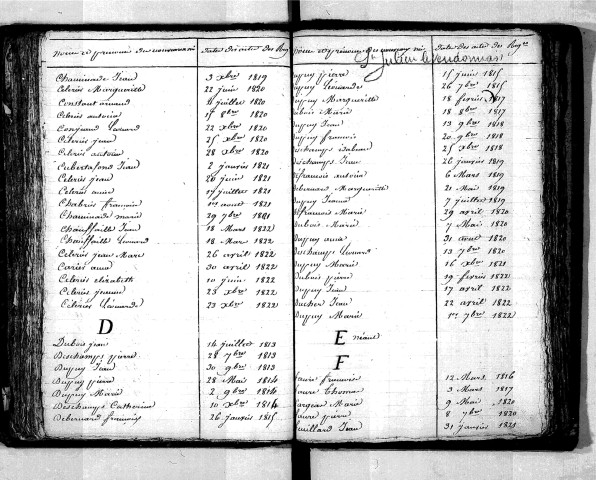 Noms et prénoms des nouveaux nés Dates des actes des Reg.es
Chaminade Jean 3 xbre 1819
Celerier Marguerite 22 juin 1820
Constant armand 11 juillet 1820
Celerier antoine 15 8bre 1820
Léonard 22 xbre 1820
Celerier jean 25 xbre 1820
Celerier antoine 28 xbre 1820
Cubertafond Jean 2 janvier 1821
Celerier jean 20 juin 1821
Celerier anne 17 juillet 1821
Chabrier françois 1er aout 1821
Chaminade marie 29 7bre 1821
Chauffaille Jean 18 Mars 1822
Chauffaille Léonard 18 Mars 1822
Celerier jean Marc 26 avril 1822
Cariés anne 30 avril 1822
Celerier elizabeth 10 juin 1822
Celerier jeanne 23 xbre 1822
Celerier Léonarde 23 xbre 1822
D
Dubois jean 14 juillet 1813
Deschamps pierre 28 7bre 1813
Dupuy Jean 30 9bre 1813
Dupuy pierre 28 Mai 1814
Dupuy Marie 2 9bre 1814
Deschamps Catherine 10 xbre 1814
Debernard françois 26 janvier 1815
St Julien le Vendonnais
Noms et prénoms des nouveaux nés Dates des actes des Reg.es
Dupuy pierre 15 juin 1815
Dupuy Léonarde 26 7bre 1815
Dupuy Marguerite 18 fevrier 1817
Dubois Marie 18 8bre 1817
Dupuy Jean 13 9bre 1818
Dupuy françois 20 9bre 1818
Deschamps 25 xbre 1818
Deschamps Jean 26 janvier 1819
Defrancois antoine 6 Mars 1819
Debernard Marguerite 21 Mai 1819
Dupuy Jeanne 7 juillet 1819
Defrancois Marie 29 avril 1820
Dubois Marie 7 Mai 1820
Dupuy anna 31 aout 1820
Deschamps Léonard 13 7bre 1820
Dupuy Marie 16 xbre 1821
Dubois pierre 19 fevrier 1822
Dupuy Jean 17 avril 1822
Ducher Jean 22 avril 1822
Dupuy Marie 1er 7bre 1822
E
néant
F
faure françoise 13 Mars 1816
faure Thomas 3 Mars 1817
Marie 9 Mai 1820
faure pierre 8 7bre 1820
feuillard Jean 31 janvier 1821